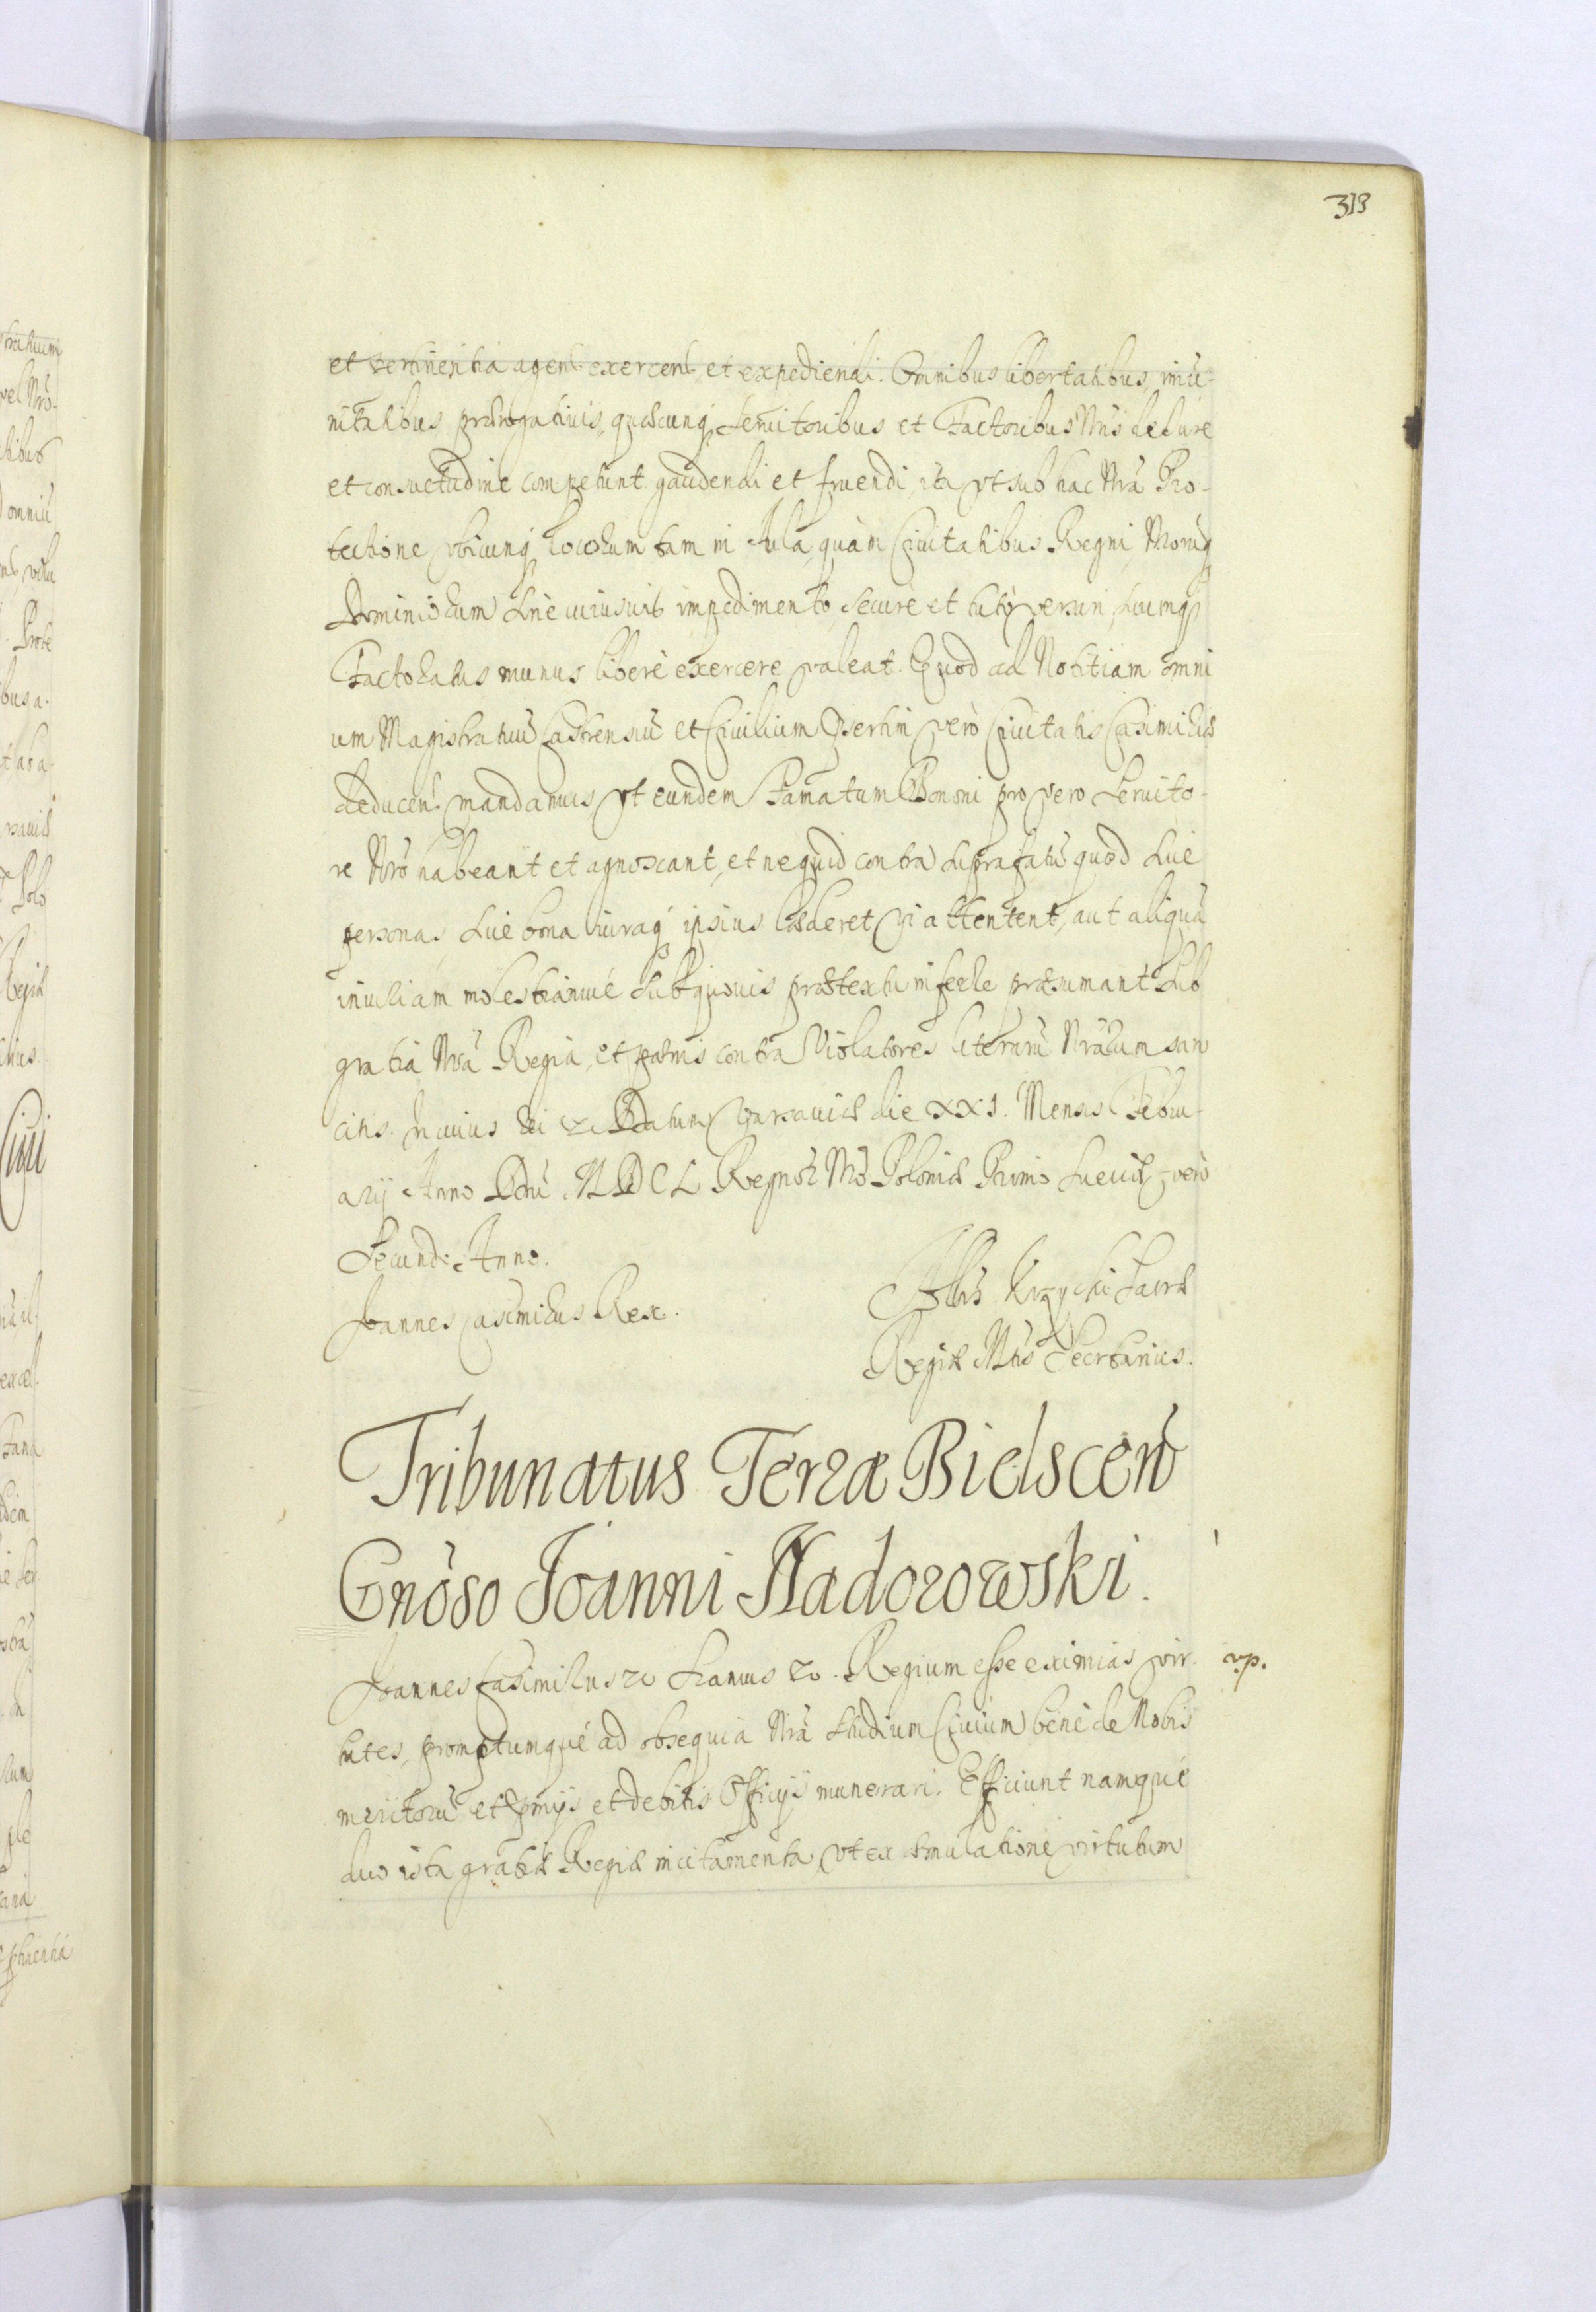 313
et pertinentia agend exercend et expediendi. Omnibus libertatibus, imu-
nitatibus prærogativis, quæcunq Servitoribus et Factoribus Nris de Jure
et consuetudine competunt gaudendi et fruendi, ita vt sub hac Nrã Pro-
tectione vbicunq locorum tam in Aula, quàm Civitatibus Regni, Nõrũq
Dominiorum sinè cuiusuis impedimento, secure et tutò versari, suumq
Factoratus munus liberè exercere valeat. Quod ad Notitiam omni
um Magistratuũ Castrensiũ et Civilium Psertim verò Civitatis Casimiriæ
deducend mandamus vt eundem Famatum Bononi pro vero Servito-
re Nrõ habeant et agnoscant, et nequid contra supra fatũ quod siue
personas siue bona iuraq ipsius læderet vi attentent, aut aliquã
iniuriam molestiamué sub quouis prætextu inferre præsumant sub
gratia Nrã Regia, et pœnis contra Violatores literarũ Nrãrum san
citis. In cuius rei &c Datum Varsauiæ die XXI. Mensis Febru-
arij Anno Dnĩ MDCL Regnor Nrõ Poloniæ Primo Sueciæ verò
Secundo Anno.
Joannes Casimirus Rex.
Albrs Krzycki Sacræ
Regiæ Mttis Secretarius.
Tribunatus Terræ Bielscen
Gnoso Joanni Nadorowski.
Joannes Casimirus &c Sanus &c. Regium esse eximias vir-
vp.
tutes, promptumqué ad obsequia Nrã studium Civium benè de Nobis
meritorũ et Pmijs et debitis Officijs munerari. Efficiunt namqué
duo ista gratiæ Regiæ incitamenta, vt ex æmulatione virtutum